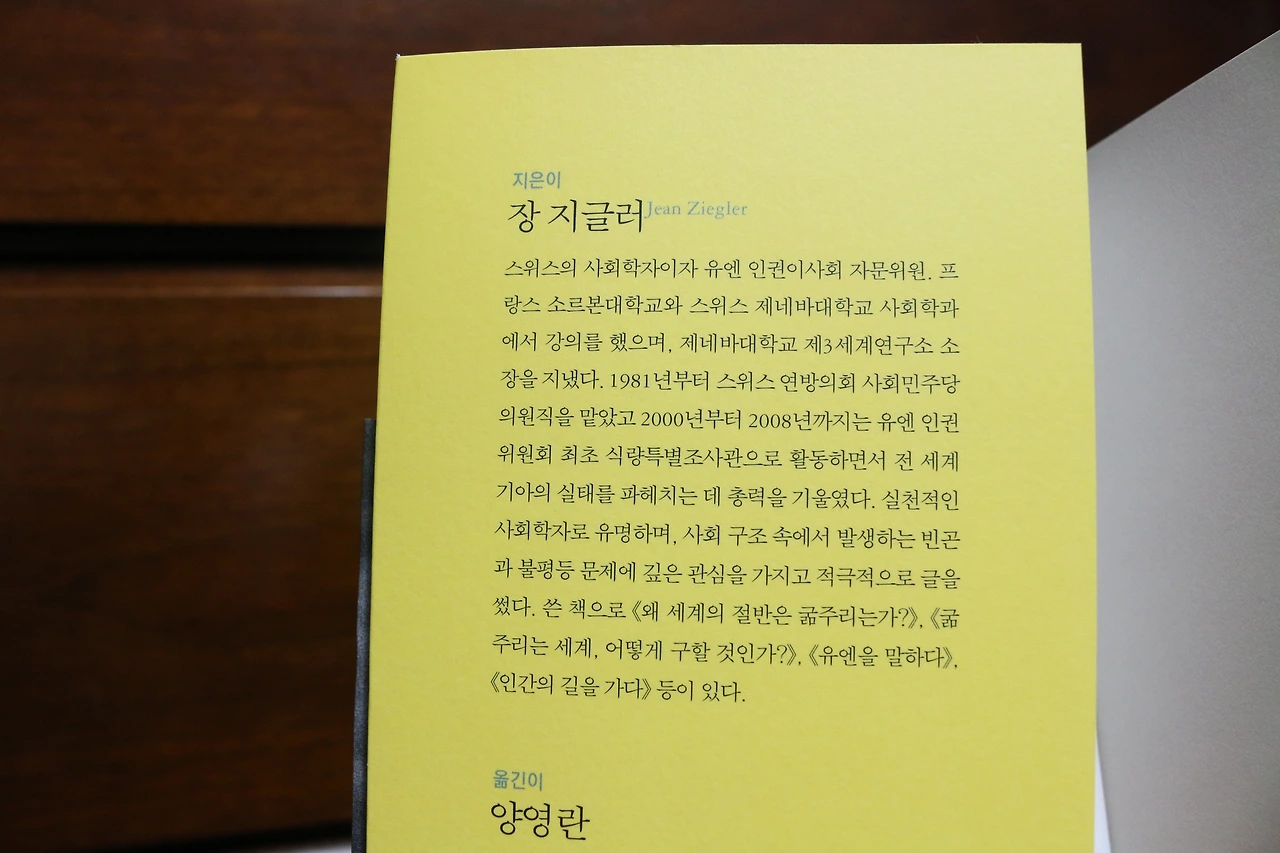 지은이
장 지글러 Jean Ziegler
스위스의 사회학자이자 유엔 인권이사회 자문위원. 프
랑스 소르본대학교와 스위스 제네바대학교 사회학과
에서 강의를 했으며, 제네바대학교 제3세계연구소 소
장을 지냈다. 1981년부터 스위스 연방의회 사회민주당
의원직을 맡았고 2000년부터 2008년까지는 유엔 인권
위원회 최초 식량특별조사관으로 활동하면서 전 세계
기아의 실태를 파헤치는 데 총력을 기울였다. 실천적인
사회학자로 유명하며, 사회 구조 속에서 발생하는 빈곤
과 불평등 문제에 깊은 관심을 가지고 적극적으로 글을
썼다. 쓴 책으로 《왜 세계의 절반은 굶주리는가?》, 《굶
주리는 세계, 어떻게 구할 것인가?》, 《유엔을 말하다》,
《인간의 길을 가다》 등이 있다.
옮긴이
양영란